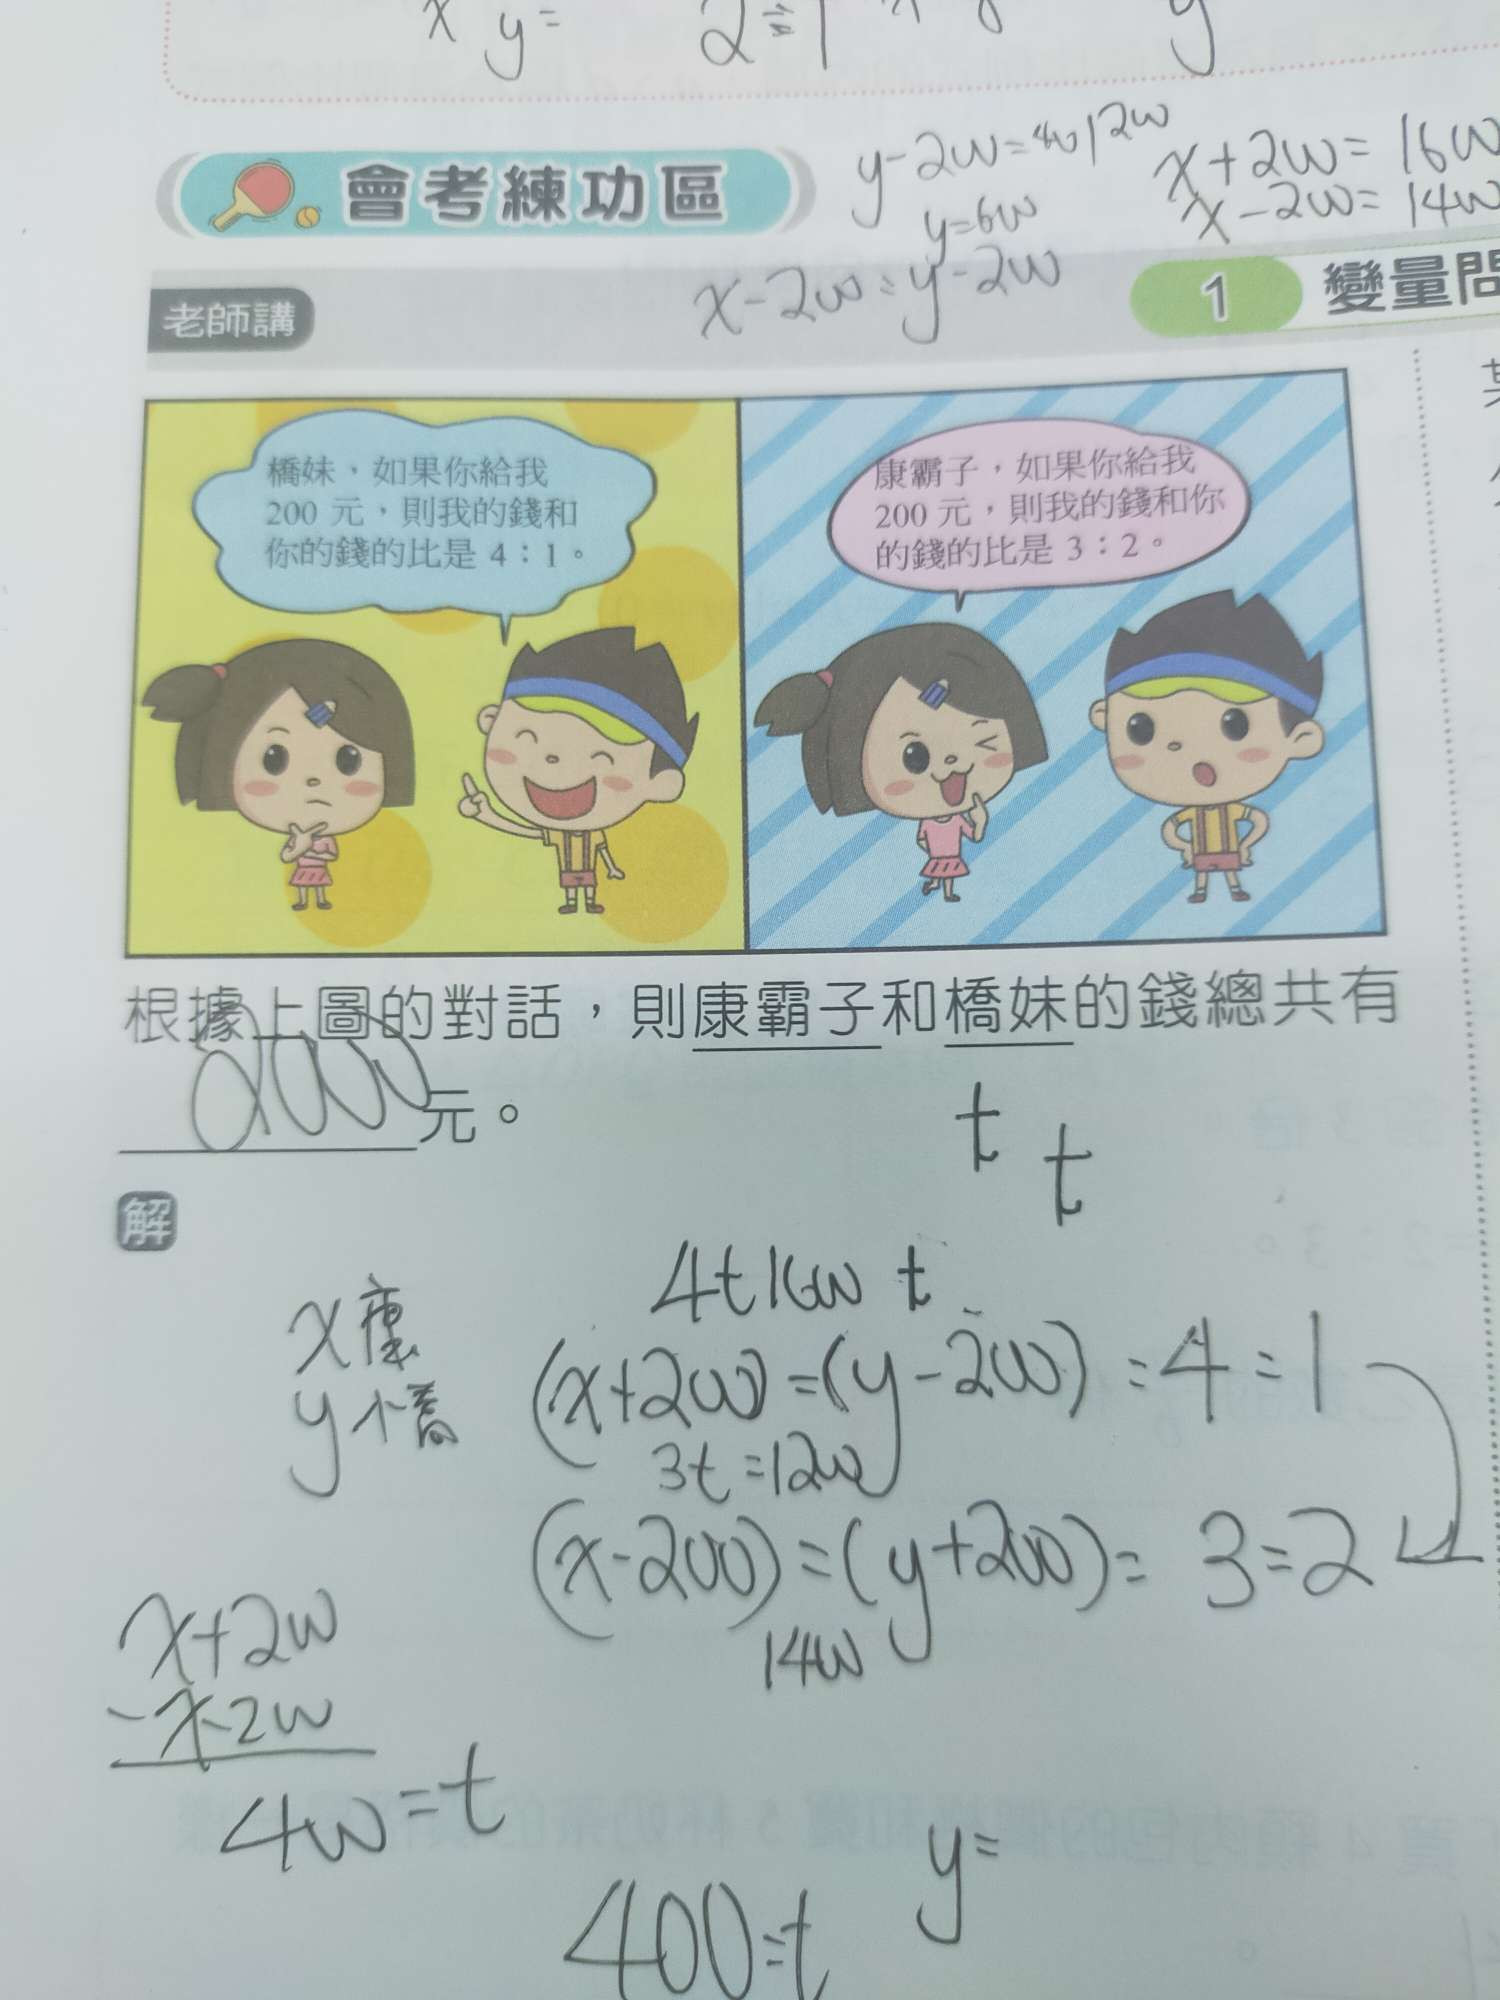 x y= 2=1
y-2w=4w12w
y=6w
x+2w=16w
x-2w=14w
會考練功區
x-2w=y-2w
老師講
1 變量問
橋妹、如果你給我
200 元，則我的錢和
你的錢的比是 4：1。
康霸子，如果你給我
200 元，則我的錢和你
的錢的比是 3：2。
根據上圖的對話，則康霸子和橋妹的錢總共有
2000元。
t
t
解
4t16w t
x康
y橋
(x+2w)=(y-2w)=4=1
3t=12w
(x-200)=(y+200)=3=2
14w
x+2w
-x-2w
4w=t
y=
400=t